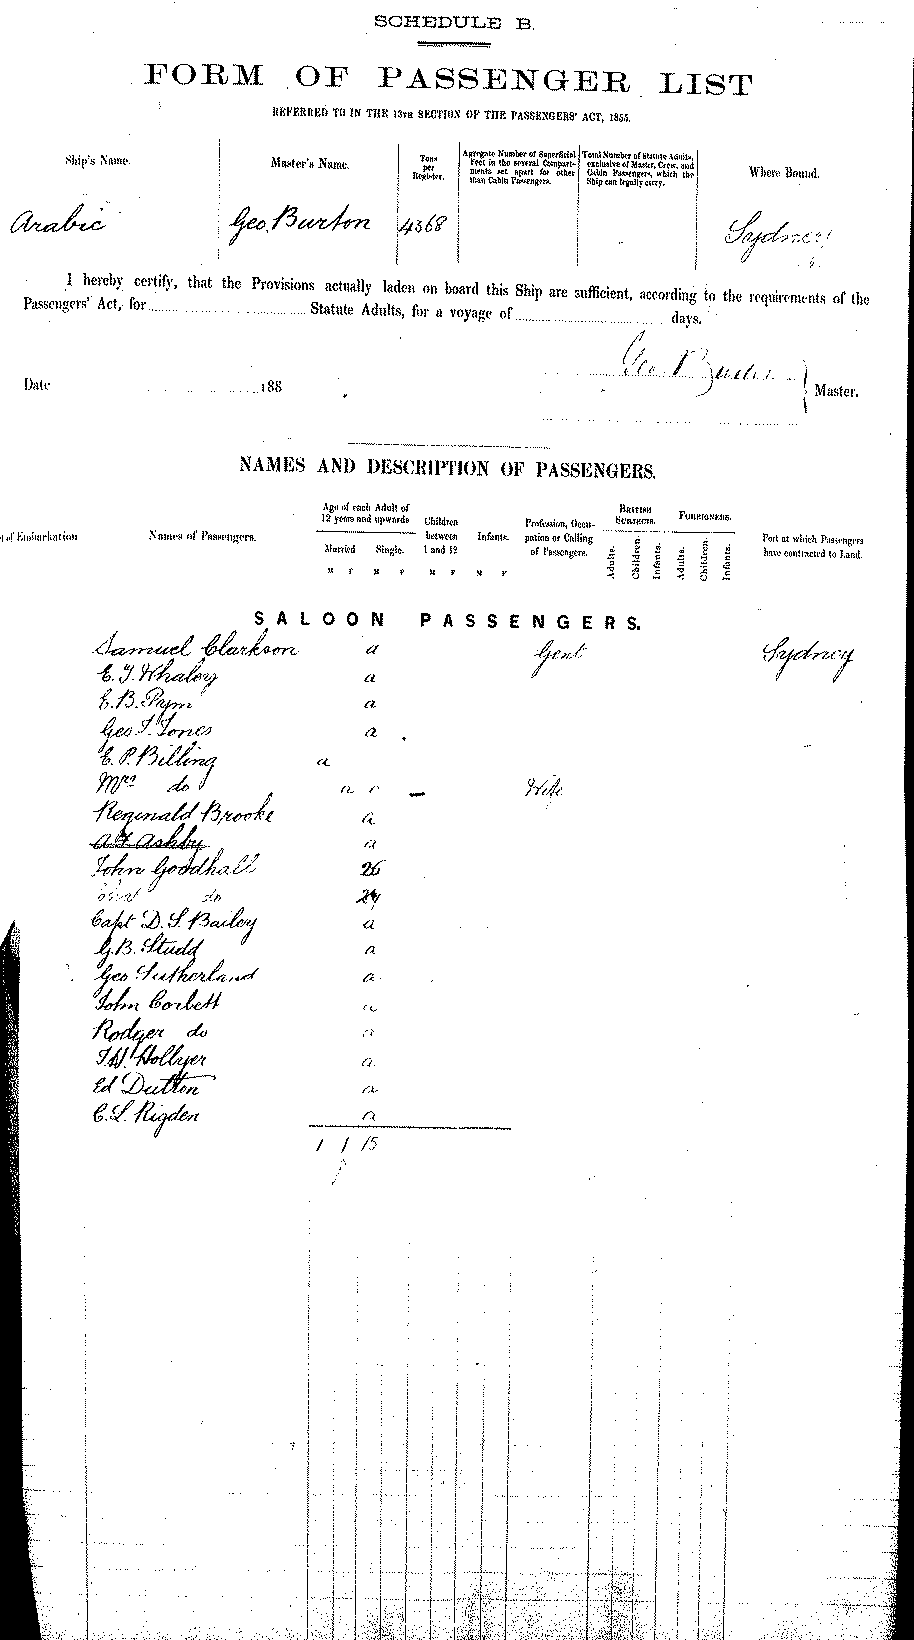 SCHEDULE B.
FORM OF PASSENGER LIST
REFERRED TO IN THE 13TH SECTION OF THE PASSENGERS' ACT, 1855.
Ship's Name. Master's Name. Tons per Register. Agregate Number of Superficial Feet in the several Compartments set apart for other than Cabin Passengers. Total Number of Statute Adults, exclusive of Master, Crew, and Cabin Passengers, which the Ship can legally carry. Where Bound.
Arabic Geo. Burton 4368 Sydney
I hereby certify, that the Provisions actually laden on board this Ship are sufficient, according to the requirements of the
Passengers' Act, for Statute Adults, for a voyage of days.
Geo Burton
Date 188 Master.
NAMES AND DESCRIPTION OF PASSENGERS.
of Embarkation Names of Passengers. Age of each Adult of 12 years and upwards Married Single. Children between 1 and 12 Infants. Profession, Occupation or Calling of Passengers. BRITISH SUBJECTS. Adults. Children. Infants. FOREIGNERS. Adults. Children. Infants. Port at which Passengers have contracted to Land.
M F M F M F M F
SALOON PASSENGERS.
Samuel Clarkson a Gent Sydney
E. J. Whaley a
E. B. Pym a
Geo F. Jones a
E. P. Billing a
Mrs do a Wife
Reginald Brooke a
A F Ashby a
John Goodhall 26
do 24
Capt D. S. Bailey a
G. B. Studd a
Geo Sutherland a
John Corbett a
Rodger do a
Hollyer a
Ed Dutton a
C. L. Rigden a
1 1 15